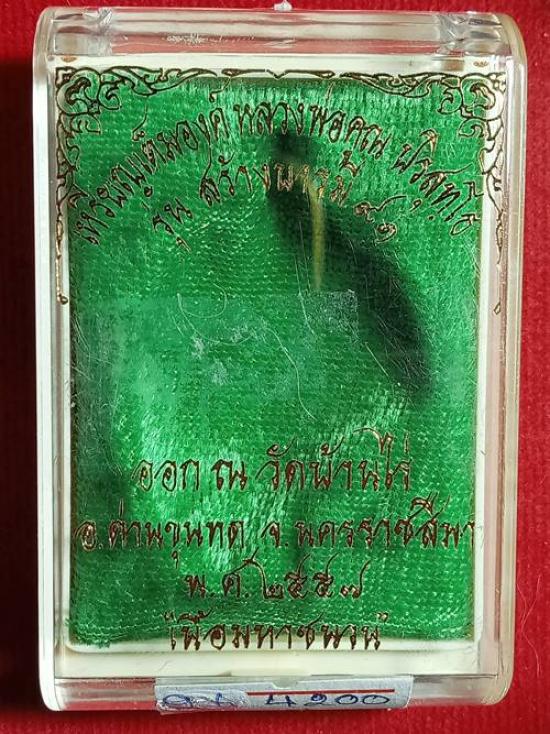 เหรียญเต็มองค์ หลวงพ่อคูณ ปริสุทฺโธ
รุ่น สร้างบารมี ๙๑
ออก ณ วัดบ้านไร่
อ.ด่านขุนทด จ.นครราชสีมา
พ.ศ. ๒๕๕๗
"เนื้อมหาชนวน"
4200